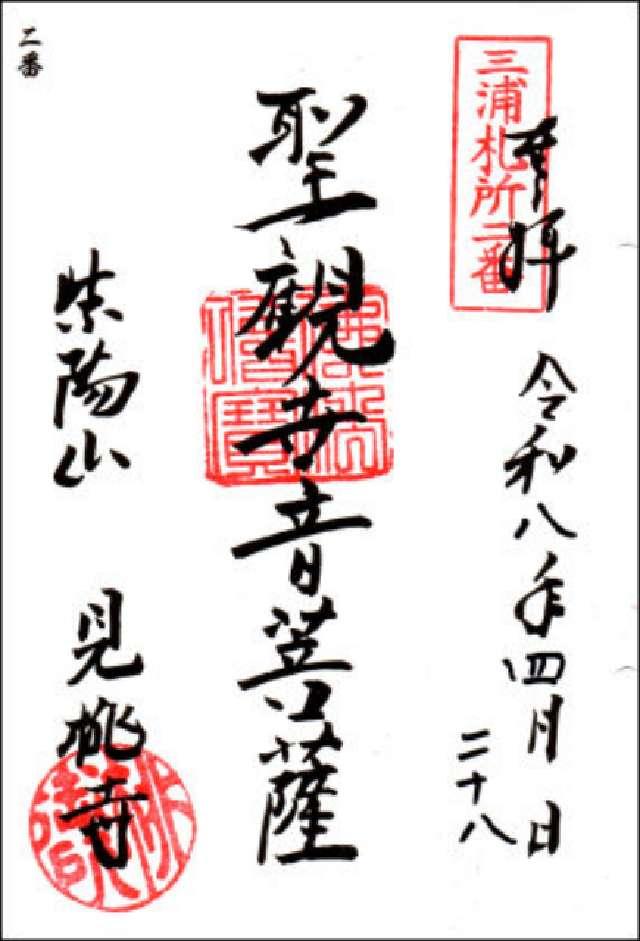 三浦札所二番
奉拝
令和八年四月日
二十八
聖觀世音菩薩
佛法僧寶
紫陽山
見桃寺
二番